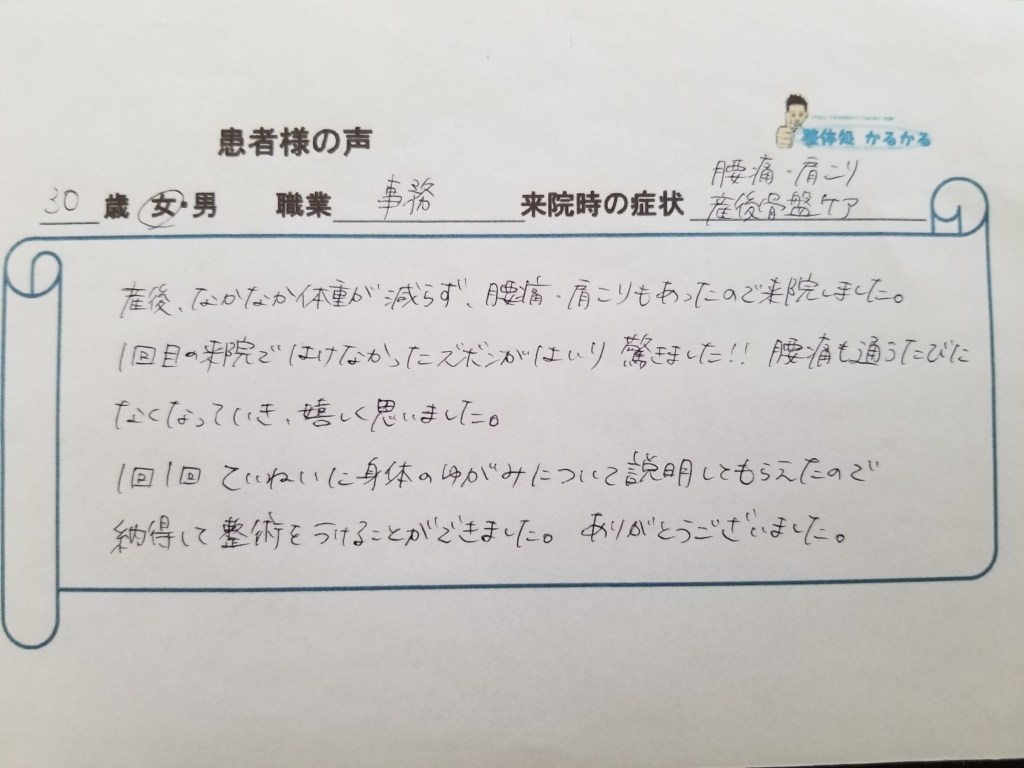 患者様の声
整体処 かるかる
30 歳 女・男 職業 事務 来院時の症状 腰痛・肩こり
産後骨盤ケア
産後、なかなか体重が減らず、腰痛・肩こりもあったので来院しました。
1回目の来院ではけなかったズボンがはいり 驚きました!! 腰痛も通うたびに
なくなっていき、嬉しく思いました。
1回1回 ていねいに身体のゆがみについて説明してもらえたので
納得して整術をうけることができました。 ありがとうございました。